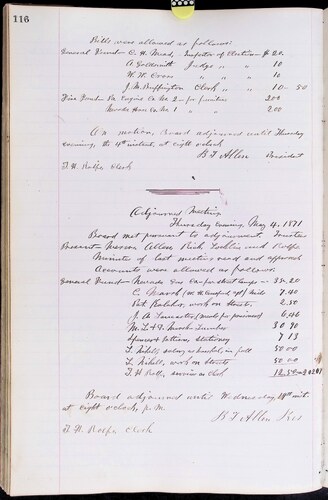 116
Bills were allowed as follows:
General Fund — C. H. Mead, Inspector of Election $20.
A. Goldsmith Judge " " 10
W. W. Cross " " " 10
J. M. Buffington Clerk " " 10 - 50
Fire Fund — Pa. Engine Co. No. 2 — for furniture 200
Hook Co. No. 1 " " 200
On motion, Board adjourned until Thursday
evening, the 4th instant, at eight o'clock
B. F. Allen President
T. H. Rolfe Clerk
Adjourned Meeting
Thursday evening, May 4, 1871
Board met pursuant to adjournment. Trustees
Present — Messrs Allen, Rich, and Rolfe.
Minutes of last meeting read and approved
Accounts were allowed as follows:
General Fund — Nevada Gas Co. for street lamps — 33.20
C. Marsh 7.40
Pat Kelcher, work on Streets, 2.50
J. A. Lancaster (meals for prisoners) 6.46
M. L. & D. Marsh Lumber 30 90
Spencer & stationery 7 13
T. salary as Marshal, in full 50 00
T. work on Streets 50.00
T. H. Rolfe, services as Clerk 12.50
Board adjourned until Wednesday 10th inst.
at eight o'clock, p.m.
B. F. Allen Pres
T. H. Rolfe Clerk